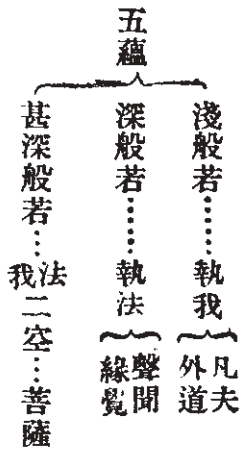 五蘊
淺般若……執我
凡夫
外道
深般若……執法
聲聞
緣覺
甚深般若…法我二空…菩薩